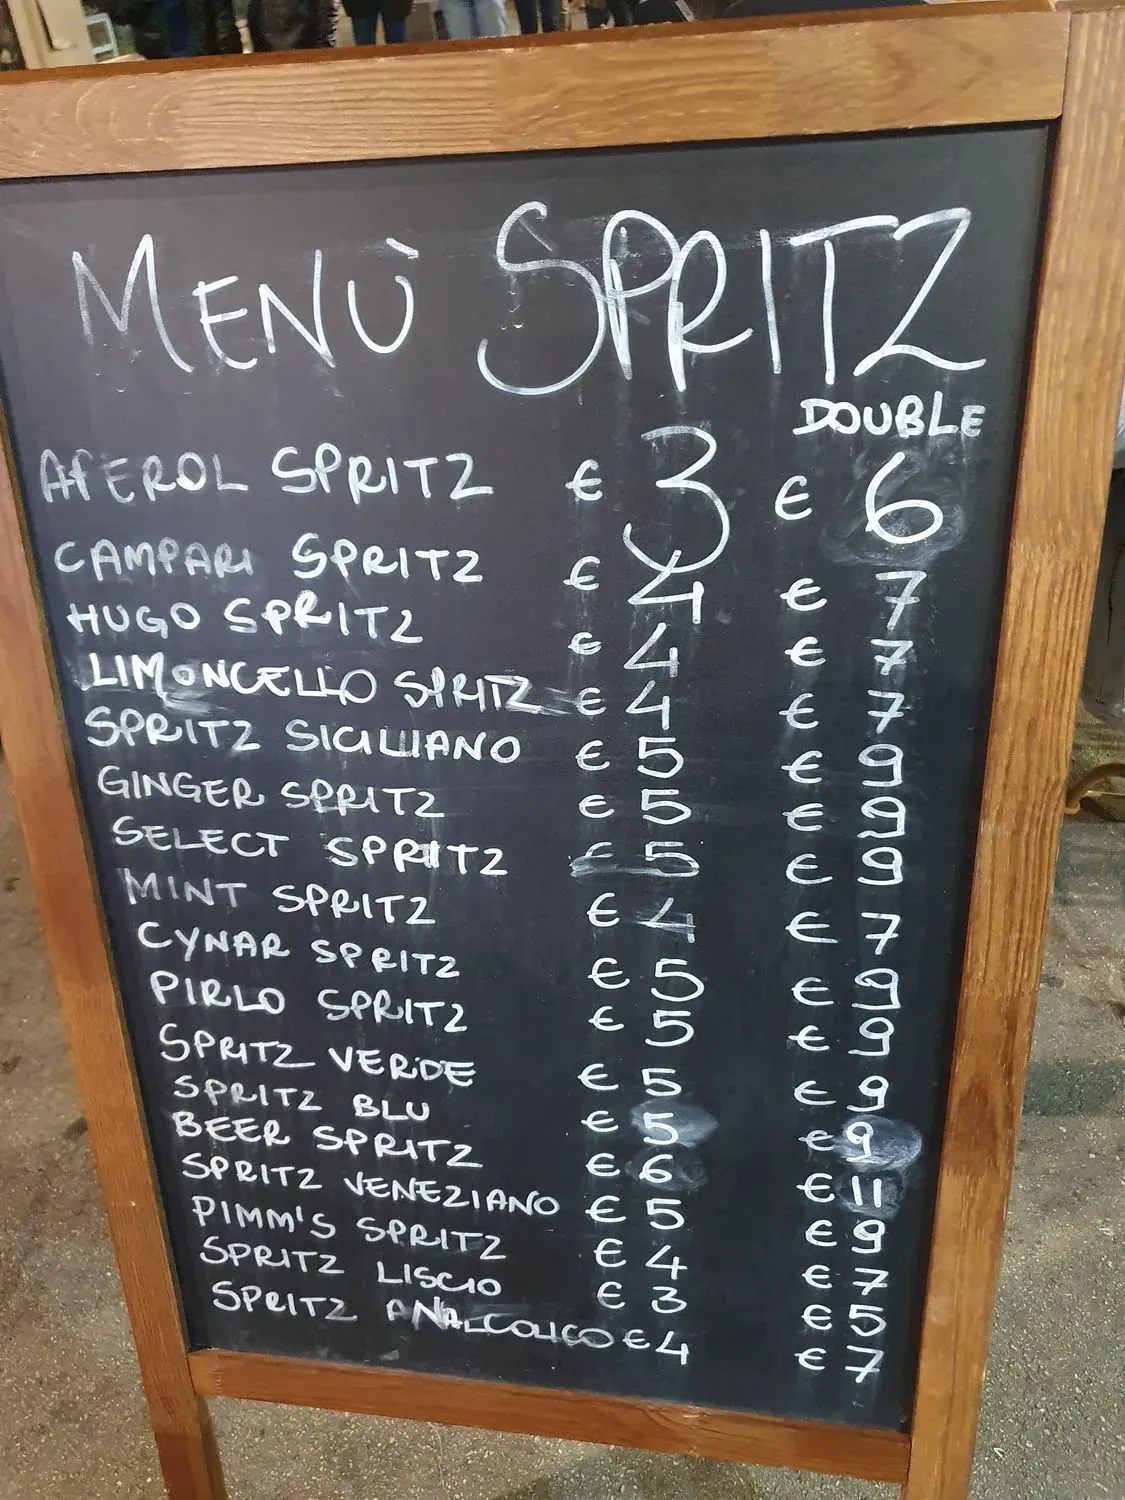 MENÙ SPRITZ
DOUBLE
AFEROL SPRITZ € 3 € 6
CAMPARI SPRITZ € 4 € 7
HUGO SPRITZ € 4 € 7
LIMONCELLO SPRITZ € 4 € 7
SPRITZ SICILIANO € 5 € 9
GINGER SPRITZ € 5 € 9
SELECT SPRITZ € 5 € 9
MINT SPRITZ € 4 € 7
CYNAR SPRITZ € 5 € 9
PIRLO SPRITZ € 5 € 9
SPRITZ VERDE € 5 € 9
SPRITZ BLU € 5 € 9
BEER SPRITZ € 6 € 11
SPRITZ VENEZIANO € 5 € 9
PIMM'S SPRITZ € 4 € 7
SPRITZ LISCIO € 3 € 5
SPRITZ ANALCOLICO € 4 € 7